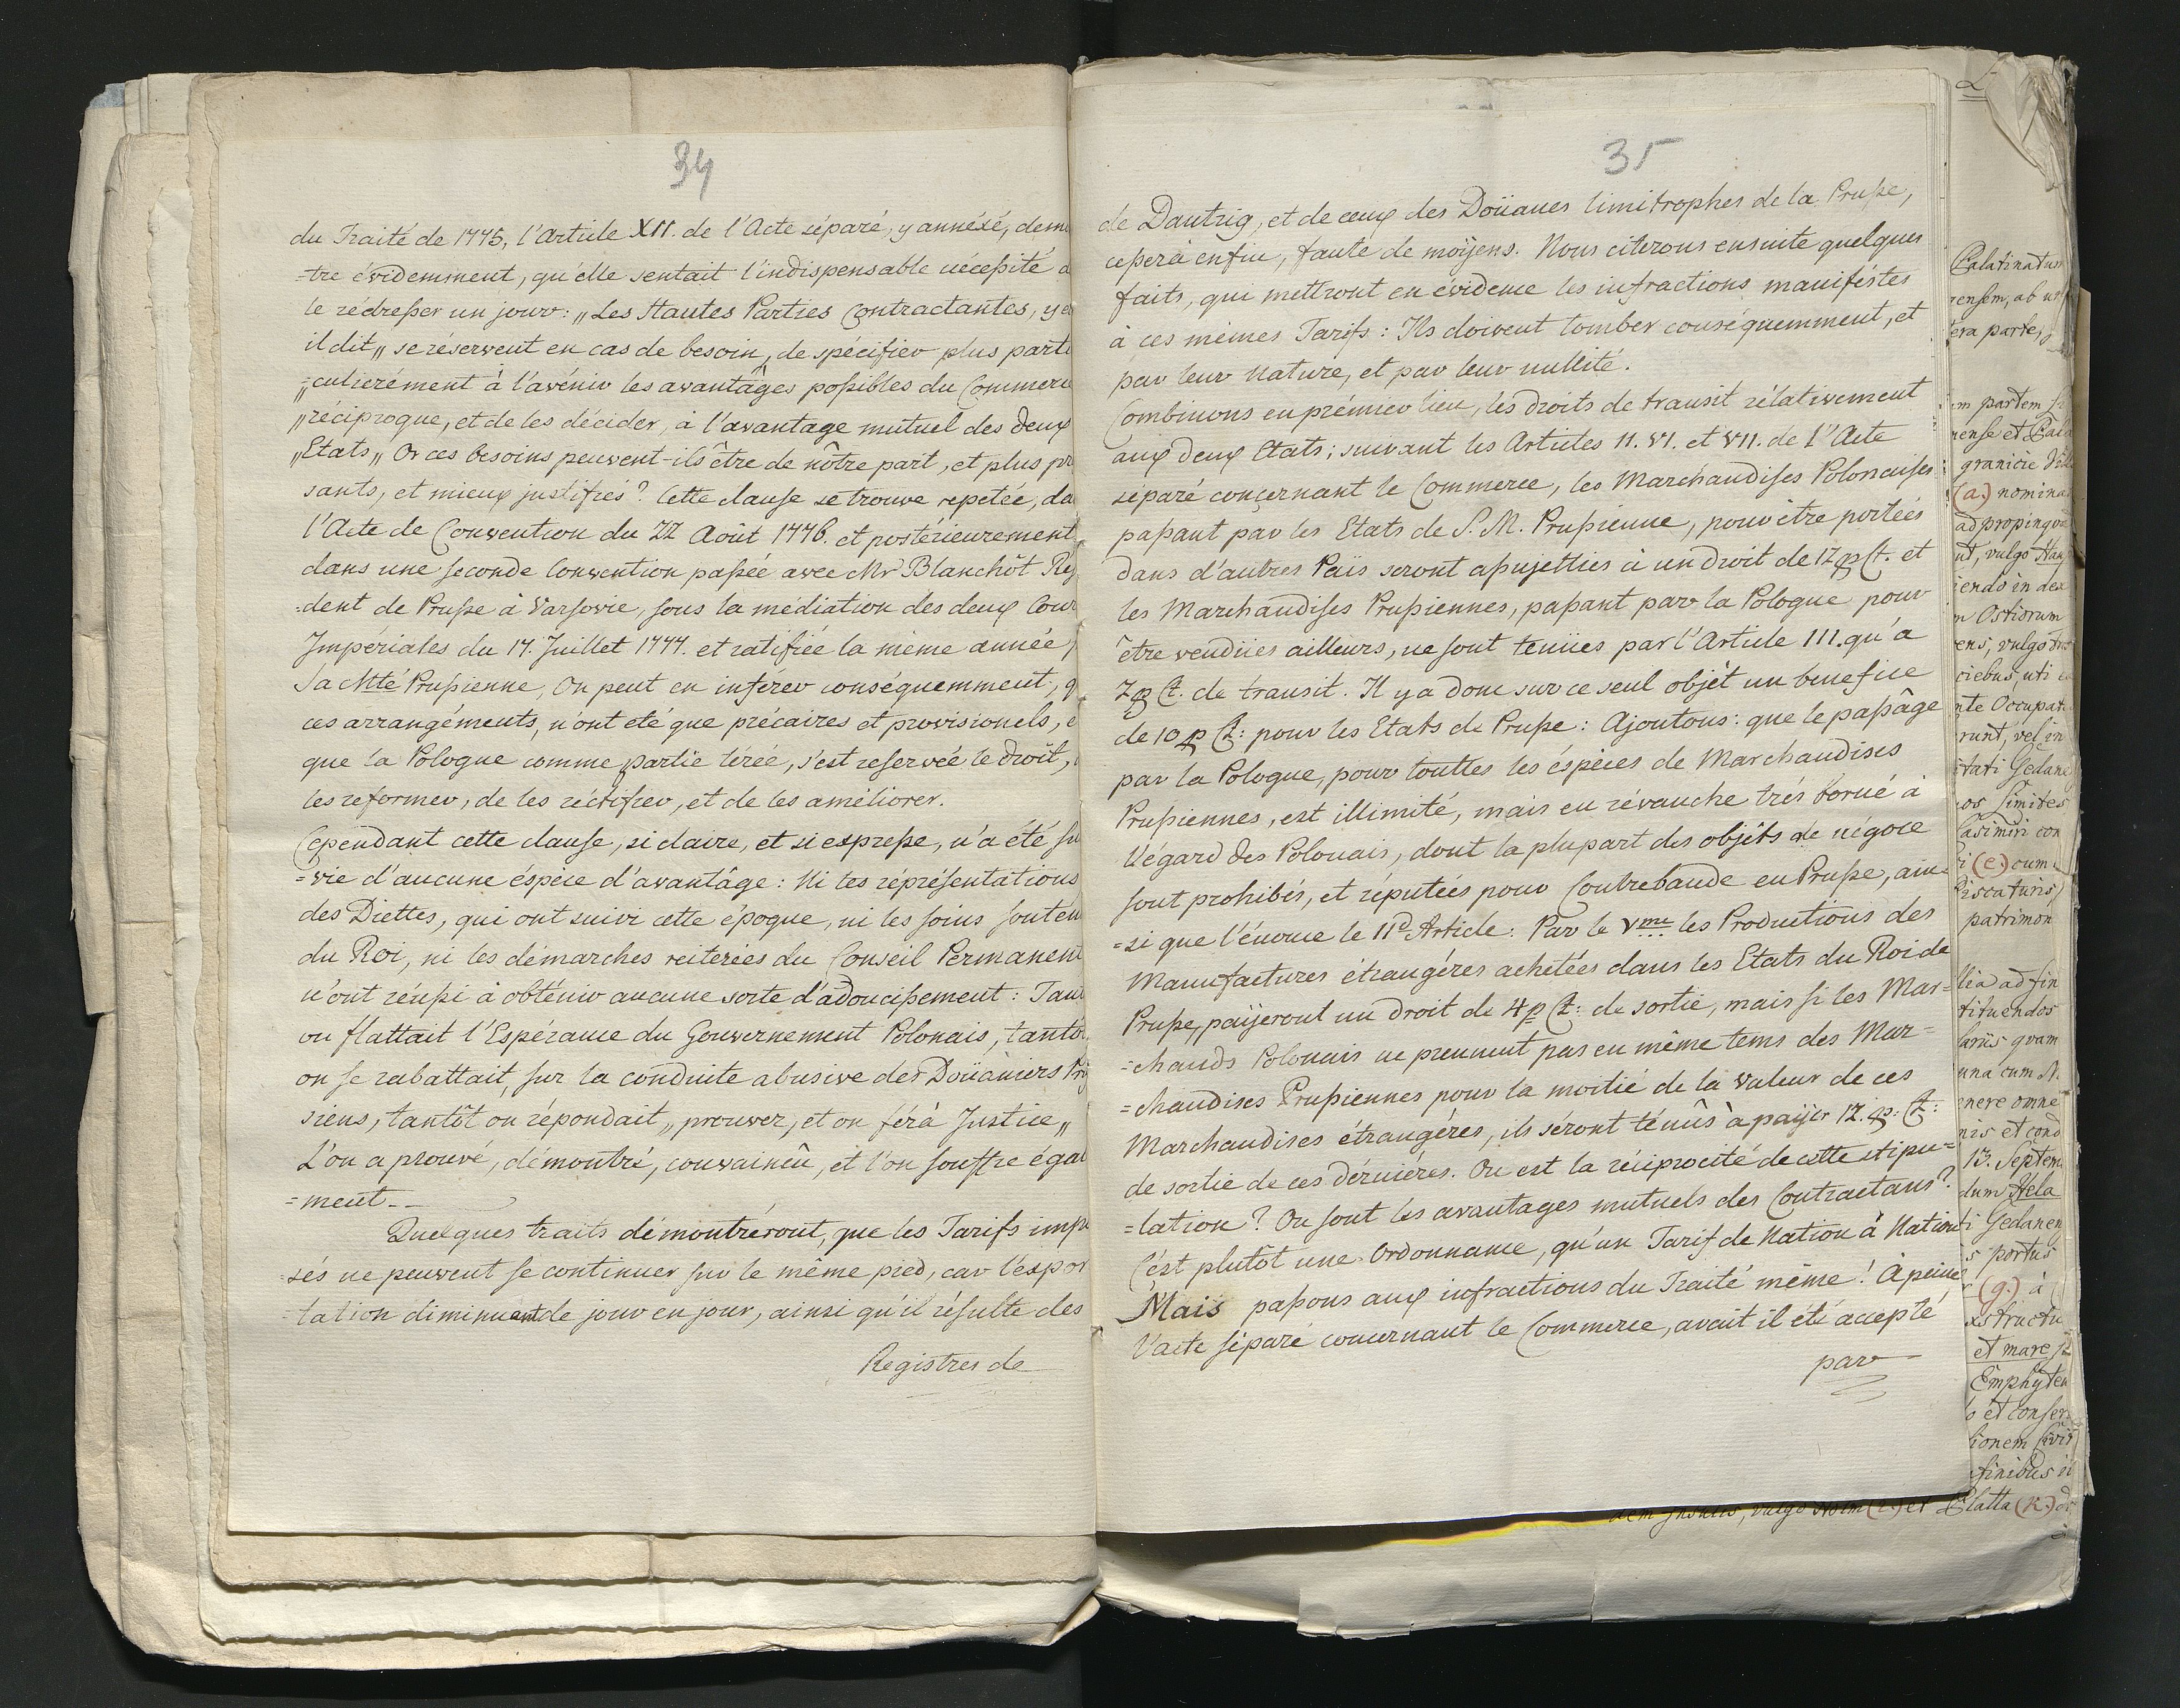 34
du Traité de 1775, l'Article XII. de l'Acte séparé, y annéxé, dem
=tre évidemment, qu'elle sentait l'indispensable néceſsité d
le rédreſser un jour: „Les Hautes Parties Contractantes, y e
il dit „ se réservent en cas de besoin, de spécifier plus parti
„=culierément à l'avénir les avantâges poſsibles du Commerce
„réciproque, et de les décider, à l'avantage mutuel des deux
„Etats„ Or ces besoins peuvent-ils être de nôtre part, et plus pr
sants, et mieux justifiés? Cette clause se trouve repetée, da
l'Acte de Convention du 22 Août 1776. et postérieurement
dans une seconde Convention paſsée avec Mr Blanchôt Rés
=dent de Pruſse à Varsovie, sous la médiation des deux Cour
Impériales du 17. Juillet 1777. et ratifiée la même année,
Sa Mté Pruſsienne, On peut en inférer conséquemment, q
ces arrangéments, n'ont eté que précaires et provisionels, e
que la Pologne comme partie lézée, s'est reservée le droit,
les reformer, de les réctifier, et de les améliorer.
Cependant cette clause, si claire, et si expreſse, n'a été su
=vie d'aucune éspéce d'avantâge: Ni les réprésentations
des Diettes, qui ont suivi cette époque, ni les soins souten
du Roi, ni les démarches reiterées du Conseil Permanent
n'ont réuſsi à obténir aucune sorte d'adouciſsement: Tant
on flattait l'Espérance du Gouvernement Polonais, tantôt
on se rabattait, sur la conduite abusive des Doüaniers Pru
siens, tantôt on répondait „ prouvez, et on férà Justice „
L'on a prouvé, démontré, convaincû, et l'on souffre égal
=ment --
Quelques traits démontréront, que les Tarifs impo
=sés ne peuvent se continuer sur le même pied, car l'expor
=tation diminuant de jour en jour, ainsi qu'il résulte des
Registres de
35
de Dantzig, et de ceux des Doüanes limitrophes de la Pruſse,
ceſserà enfin, faute de moÿens. Nous citerons ensuite quelques
faits, qui mettront en évidence les infractions manifestes
à ces mêmes Tarifs: Ils doivent tomber conséquemment, et
par leur nature, et par leur nullité.
Combinons en prémier lieu, les droits de transit rélativement
aux deux Etats; suivant les Articles II. VI. et VII. de l'Acte
séparé conçernant le Commerce, les Marchandises Polonaises
paſsant par les Etats de S. M. Pruſsienne, pour être portées
dans d'autres Païs seront aſsujetties à un droit de 12 p Ct. et
les Marchandises Pruſsiennes, paſsant par la Pologne pour
être vendües ailleurs, ne sont tenües par l'Article III. qu'à
2 p Ct. de transit. Il y a donc sur ce seul objêt un benefice
de 10 p Ct: pour les Etats de Pruſse: Ajoutons: que le paſsâge
par la Pologne, pour touttes les éspéces de Marchandises
Pruſsiennes, est illimité, mais en révanche trés borné à
l'égard des Polonais, dont la plupart des objêts de négoce
sont prohibés, et réputées pour Contrebande en Pruſse, ain=
=si que l'énonce le IId Article: Par le Vme les Productions des
Manufactures étrangéres achetées dans les Etats du Roi de
Pruſse, paÿeront un droit de 4 p Ct: de sortie, mais si les Mar=
=chands Polonais ne prennent pas en même tems des Mar=
=chandises Pruſsiennes pour la moitié de la valeur de ces
Marchandises étrangéres, ils séront ténûs à paÿer 12. p: Ct:
de sortie de ces dérniéres. Où est la réciprocité de cette stipu=
=lation? Où sont les avantages mutuels des Contractans?
C'est plutôt une Ordonnance, qu'un Tarif de Nation à Nation
Mais paſsons aux infractions du Traité même! À peine
l'acte séparé concernant le Commerce, avait il été accepté
par
Palatinatus
rensem, ab ur
era parte,
m partem
rense et Pala
granicie
(a.) nomina
adpropinqva
nt, vulgo
iendo in dex
n Ostiorum
ens, vulgo
ciebus, uti
nte Occupat
runt, vel in
itati Gedane
os limites
Casimiri con
i (e.) cum
Piscaturis,
patrimon
lia ad fin
tituendos
lariis qvam
una cum
enere omne
nis et cond
13. Septem
dum Hela
ti Gedanen
s portus
(g.) à
xstructu
et mare
Emphyteu
o et conser
ionem Civit
finibus
vulgo et Platta (k.)